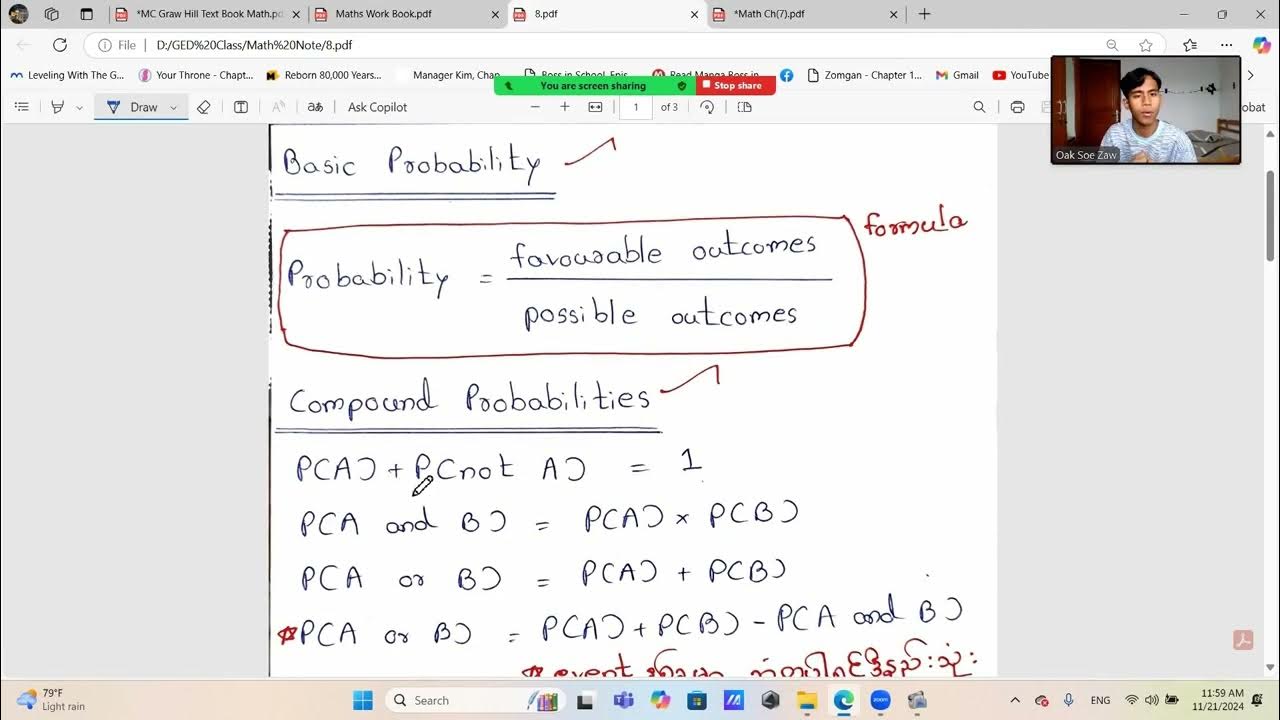 *MC Graw Hill Text Book Math.pd
Maths Work Book.pdf
8.pdf
*Math Ch(7).pdf
File
D:/GED%20Class/Math%20Note/8.pdf
Leveling With The G...
Your Throne - Chapt...
Reborn 80,000 Years...
Manager Kim, Chap
Boss in School, Epis
Read Manga Boss in
Zomgan - Chapter 1...
Gmail
YouTube
You are screen sharing
Stop share
Draw
Ask Copilot
1
of 3
obat
Oak Soe Zaw
Basic Probability
formula
Probability = favourable outcomes
possible outcomes
Compound Probabilities
P(A) + P(not A) = 1
P(A and B) = P(A) × P(B)
P(A or B) = P(A) + P(B)
P(A or B) = P(A) + P(B) - P(A and B)
event
79°F
Light rain
Search
ENG
11:59 AM
11/21/2024